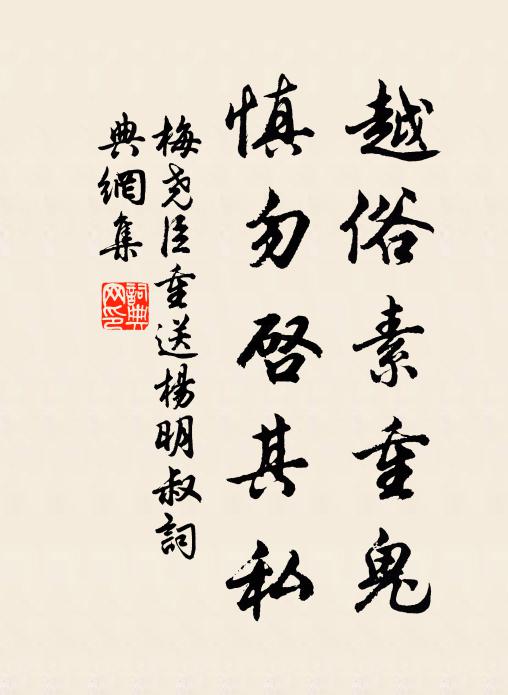 越俗素重鬼
慎勿啓其私
梅尧臣重送楊明叔詞
典網集
詞典
网印